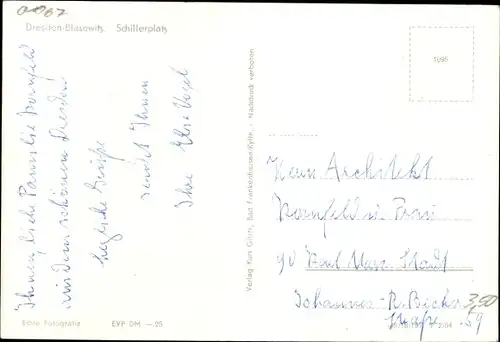 0067
Dresden-Blasewitz, Schillerplatz
1095
Ihnen, liebe Familie Kornfeld
aus dem schönen Dresden
herzliche Grüße
sendet Ihnen
Ihre Else Vogel
Verlag Kurt Bad Frankenhausen/Kyffh. - Nachdruck verboten
Herrn Architekt
Kornfeld u. Frau
90 Karl-Marx-Stadt
Johannes-R. Becher
Straße 59
3,50
Echte Fotografie
EVP DM -.25